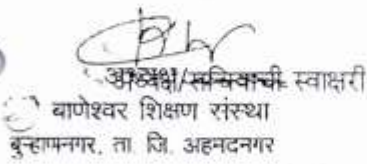 अध्यक्ष/सचिवाची स्वाक्षरी
बाणेश्वर शिक्षण संस्था
बुऱ्हाणनगर, ता. जि. अहमदनगर